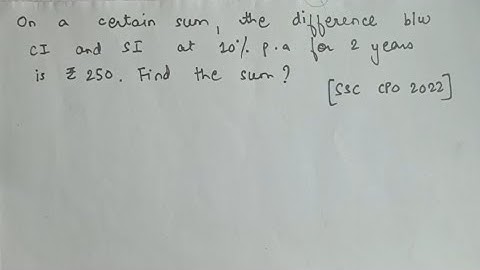 On a certain sum, the difference b/w
CI and SI at 10% p.a for 2 years
is ₹ 250. Find the sum?
[SSC CPO 2022]